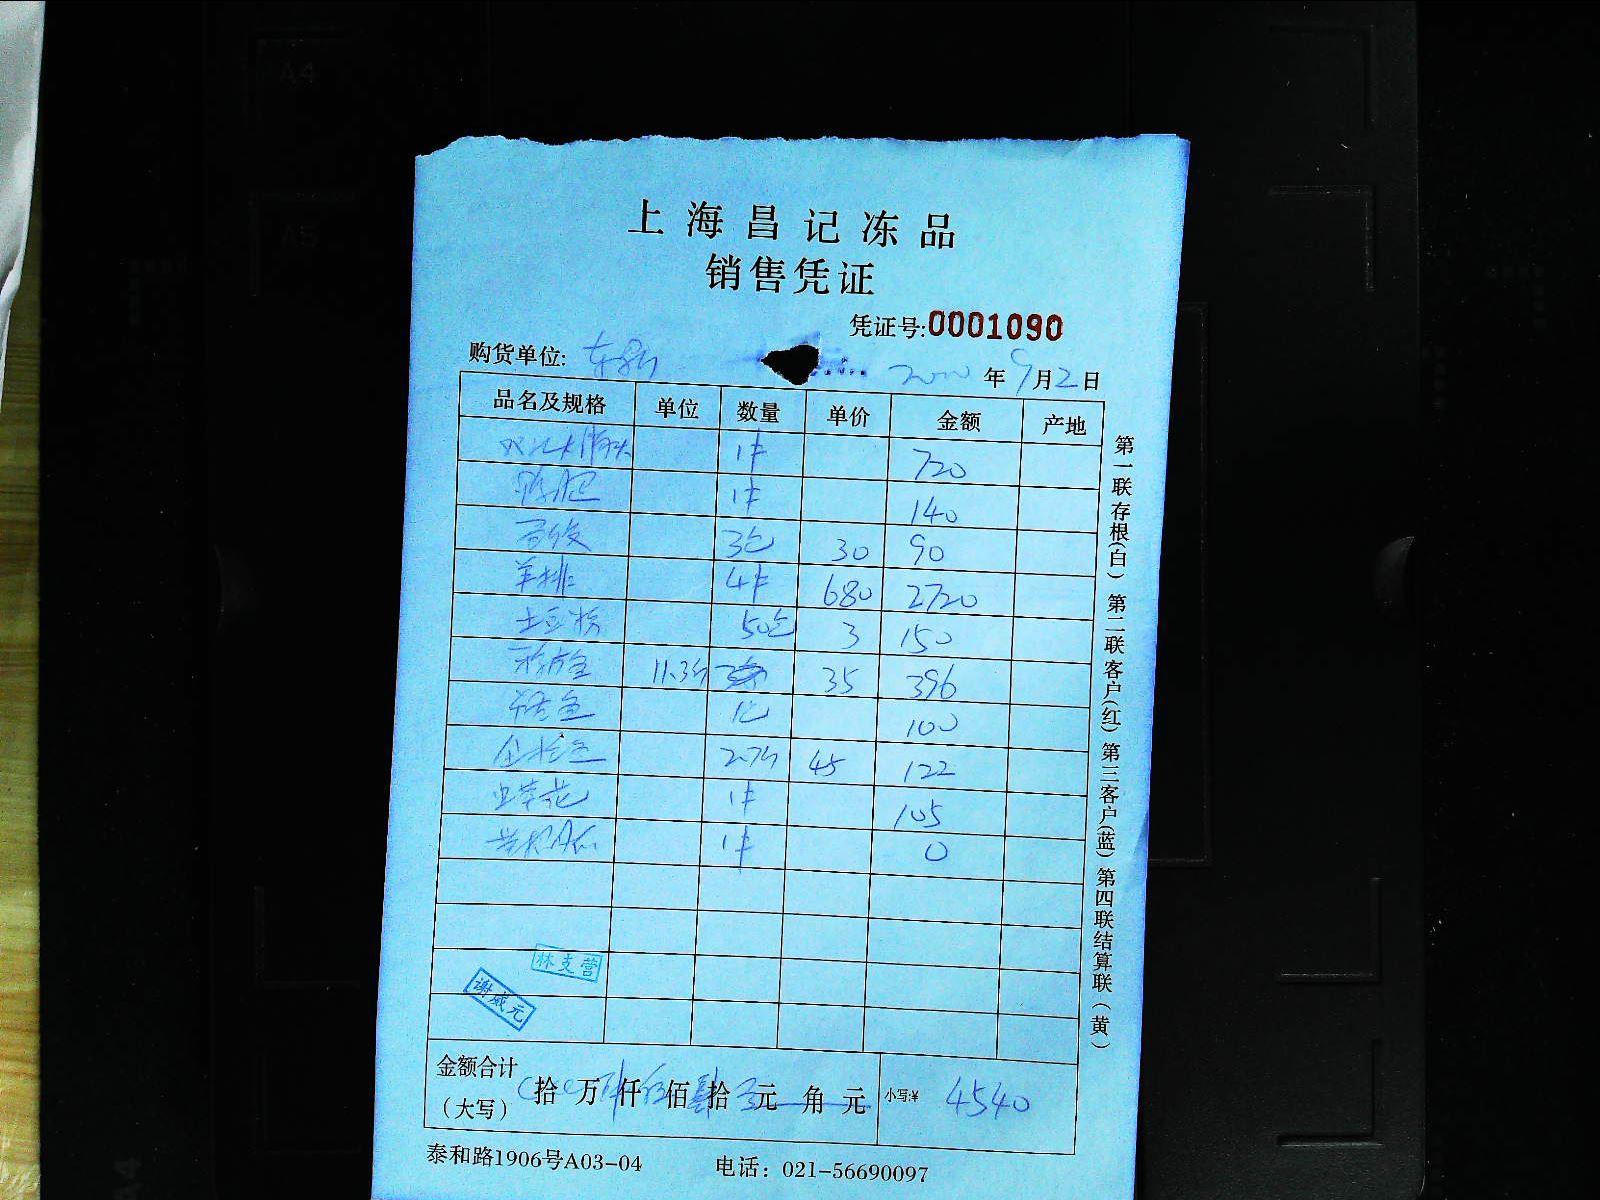 A4
A5
上海昌记冻品
销售凭证
凭证号:0001090
购货单位:
年9月2日
品名及规格 单位 数量 单价 金额 产地
1件 720
1件 140
3包 30 90
羊排 4件 680 2720
土豆粉 50包 3 150
11.3斤 35 396
1包 100
2.7斤 45 122
虫草花 1件 105
1件 0
林支营
谢威元
金额合计
(大写) 拾 万 仟 佰 拾 元 角 元 小写:¥ 4540
泰和路1906号A03-04 电话：021-56690097
第一联存根(白) 第二联客户(红) 第三客户(蓝) 第四联结算联(黄)